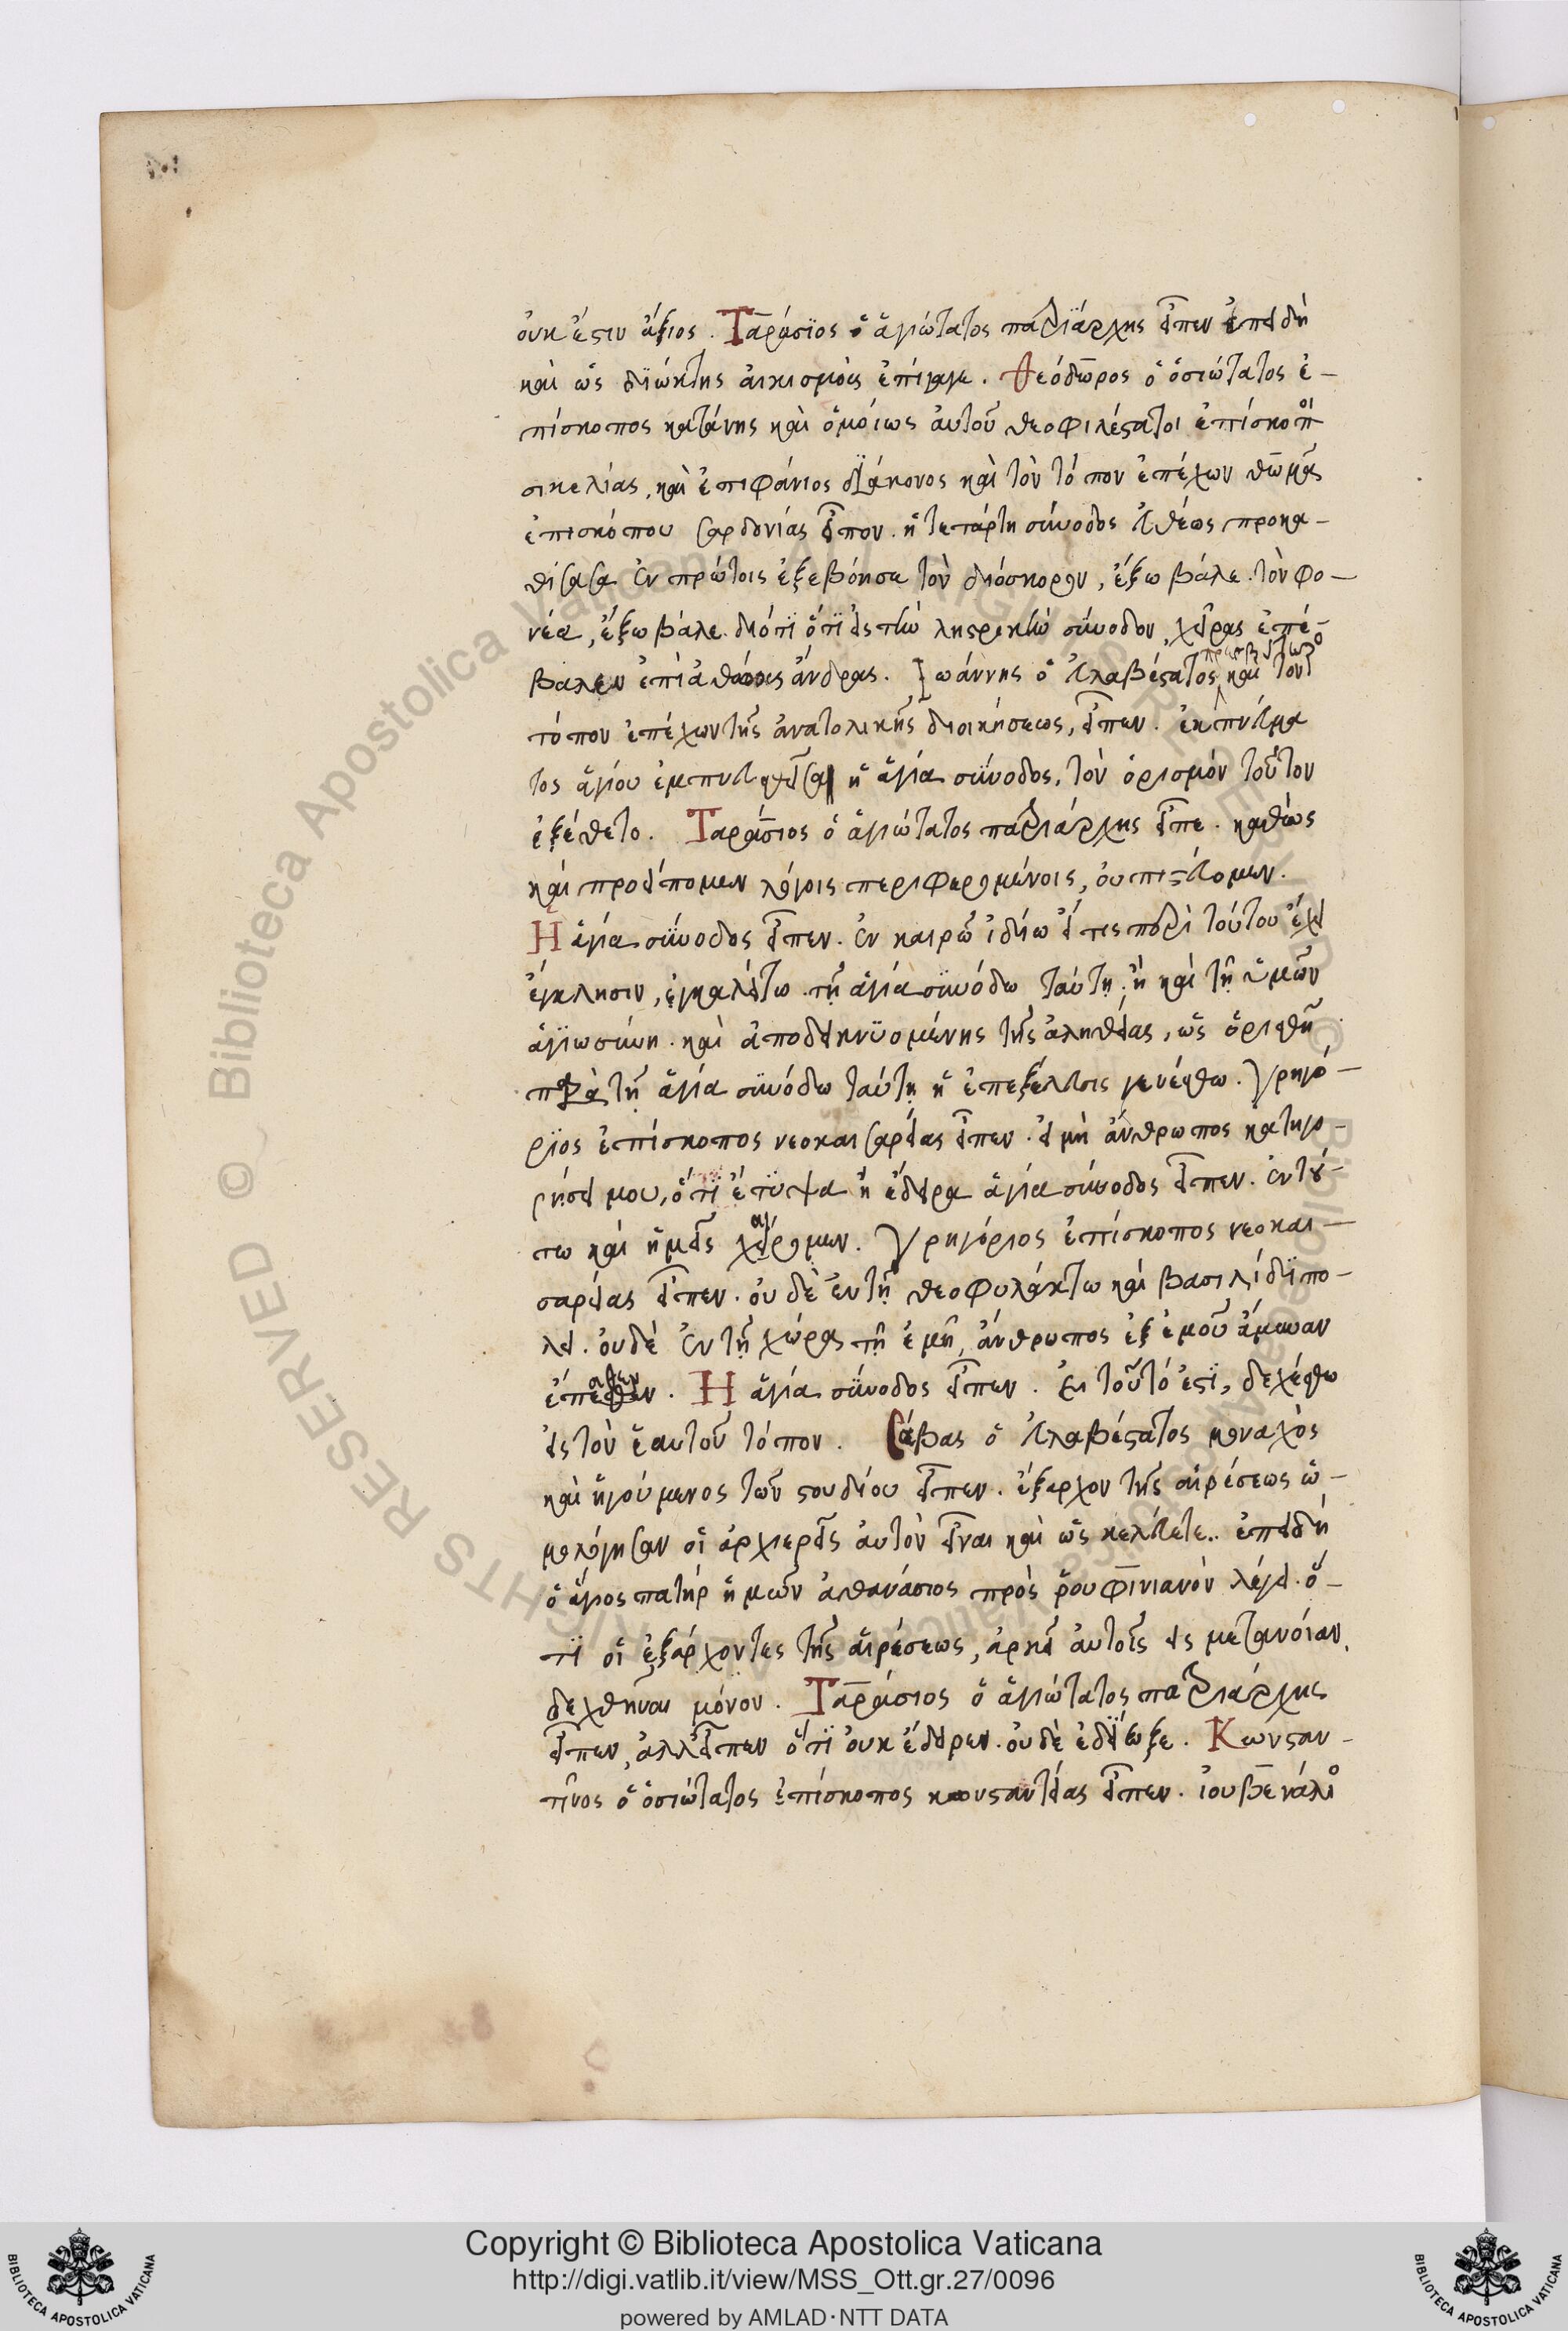 οὐκ ἔστιν ἄξιος. Ταράσϊος ὁ ἁγιώτατος πατρϊάρχης εἶπεν ἐπειδὴ
καὶ ὡς διώκτης αἰκισμοὺς ἐπήγαγε. Θεόδωρος ὁ ὁσιώτατος ἐ-
πίσκοπος κατάνης καὶ ὁμοίως αὐτοῦ θεοφιλέστατοι ἐπίσκοποι
σικελίας, καὶ ἐπιφάνιος διάκονος καὶ τὸν τόπον ἐπέχων θωμᾶ
ἐπισκόπου σαρδονίας εἶπον. ἡ τετάρτη σύνοδος εὐθέως προκα-
θίσασα ἐν πρώτοις ἐξεβόησα τὸν διόσκορον, ἔξω βάλε. τὸν φο-
νέα, ἔξω βάλε. διότϊ ὅτϊ εἰς τὴν λῃστρικὴν σύνοδον, χεῖρας ἐπέ-
βαλεν ἐπὶ ἀθώους ἄνδρας. Ἰωάννης ὁ εὐλαβέστατος πρεσβύτερος καὶ τὸν
τόπον ἐπέχων τῆς ἀνατολικῆς διοικήσεως, εἶπεν. ἐκ πνεύμα
τος ἁγίου ἐμπνευσθεῖσα ἡ ἁγία σύνοδος, τὸν ὁρισμὸν τοῦτον
ἐξέθετο. Ταράσιος ὁ ἁγιώτατος πατριάρχης εἶπε. καθὼς
καὶ προείπομεν λόγοις περιφερομένοις, οὐ πιστεύομεν.
Ἡ ἁγία σύνοδος εἶπεν. ἐν καιρῶ ἰδίω εἴ τις περὶ τούτου ἔχει
ἔγκλησιν, ἐγκαλείτω τῇ ἁγία συνόδω ταύτῃ. ἢ καὶ τῇ ὑμῶν
ἁγιωσύνη. καὶ ἀποδεικνϋομένης τῆς ἀληθείας, ὡς ὁρισθῆ
παρὰ τῇ ἁγία συνόδω ταύτῃ ἡ ἐπεξέλευσις γενέσθω. Γρηγό-
ριος ἐπίσκοπος νεοκαισαρείας εἶπεν. εἰ μὴ ἄνθρωπος κατηγο-
ρήσει μου, ὅτϊ ἔτϋψα ἢ ἔδειρα ἁγία σύνοδος εἶπεν. ἐν τού-
τω καὶ ἡμεῖς χαίρομεν. Γρηγόριος ἐπίσκοπος νεοκαι-
σαρείας εἶπεν. οὐδὲ ἐν τῇ θεοφυλάκτω καὶ βασιλίδϊ πό-
λει. οὐδὲ ἐν τῇ χώρᾳ τῇ ἐμῇ, ἄνθρωπος ἐξ ἐμοῦ ἄμυναν
ἔπαθεν. Ἡ ἁγία σύνοδος εἶπεν. Ει τοῦτό ἐστϊ, δεχέσθω
εἰς τὸν ἑαυτοῦ τόπον. Σάβας ὁ εὐλαβέστατος μοναχὸς
καὶ ἡγούμενος τῶν στουδίου εἶπεν. ἔξαρχον τῆς αἱρέσεως ὡ-
μολόγησαν οἱ ἀρχιερεῖς αὐτὸν εἶναι καὶ ὡς κελεύετε.. ἐπειδὴ
ὁ ἅγιος πατὴρ ἡμῶν ἀθανάσιος πρὸς ῥουφινιανὸν λέγει. ὅ-
τϊ οἱ ἐξάρχοντες τῆς αἱρέσεως, ἀρκεῖ αὐτοῖς εἰς μετανόιαν
δεχθῆναι μόνον. Ταράσιος ὁ ἁγιώτατος πατριάρχης
εἶπεν, ἀλλ' εἶπεν ὅτϊ οὐκ ἔδειρεν. οὐδὲ ἐδϊωξε. Κωνσταν-
τῖνος ὁ ὁσιώτατος ἐπίσκοπος κωνσταντείας εἶπεν. ἰουβενάλιο
Copyright © Biblioteca Apostolica Vaticana
http://digi.vatlib.it/view/MSS_Ott.gr.27/0096
powered by AMLAD·NTT DATA